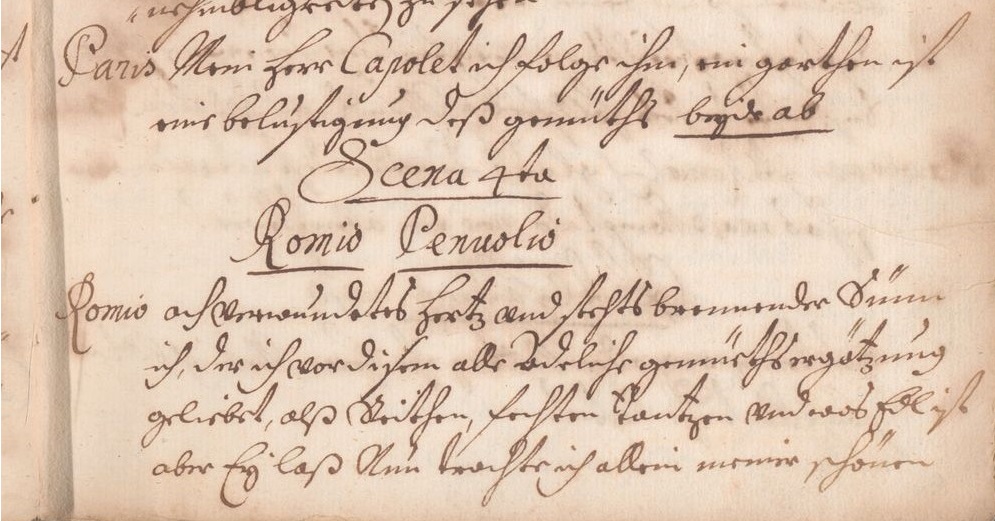 nehmbligkeiten zu sehen
Paris Mein herr Capolet ich folge ihm, ein garthen ist
eine belustigung deß gemüths beyde ab
Scena 4ta
Romio Penuolio
Romio ach verwundetes hertz und stehts brennender Sünn
ich, der ich vor disem alle Adeliche gemüethsergötzung
geliebet, alß Reithen, fechten Tantzen und was Edl ist
aber Ey laß Nun trachte ich allein meiner schönen